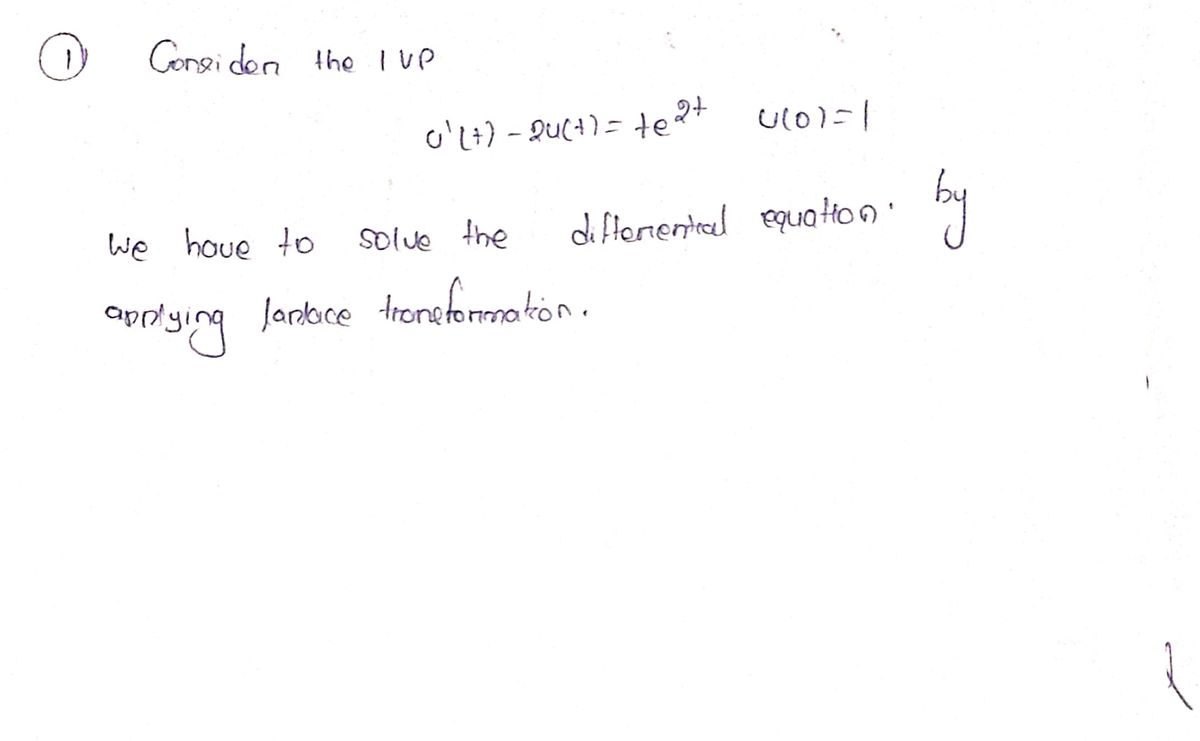 ① Consider the IVP
u'(t) - 2u(t) = te^{2t} u(0)=1
We have to solve the differential equation. by
applying laplace transformation.